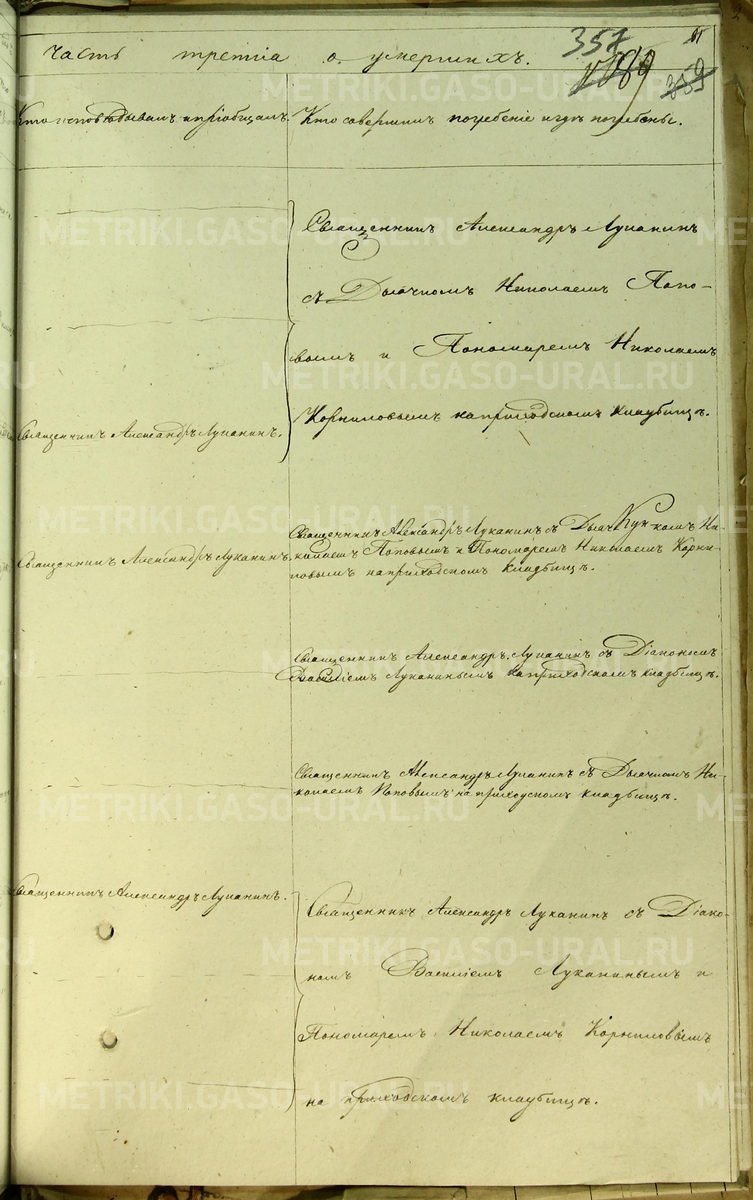 часть третiа о умершихъ.
357
1089
359
Кто исповѣдывалъ и прiобщалъ.
Кто совершилъ погребенiе и гдѣ погребены.
Священникъ Александръ Луканинъ
съ Дьячкомъ Николаемъ Попо-
вымъ и Пономаремъ Николаемъ
Корниловымъ на приходскомъ кладбищѣ.
Священникъ Александръ Луканинъ.
Священникъ Александръ Луканинъ съ Дьячкомъ Ни-
колаемъ Поповымъ и Пономаремъ Николаемъ Корни-
ловымъ на приходскомъ кладбищѣ.
Священникъ Александръ Луканинъ.
Священникъ Александръ Луканинъ съ Дiакономъ
Василiемъ Луканинымъ на приходскомъ кладбищѣ.
Священникъ Александръ Луканинъ съ Дьячкомъ Ни-
колаемъ Поповымъ на приходскомъ кладбищѣ.
Священникъ Александръ Луканинъ.
Священникъ Александръ Луканинъ съ Дiако-
номъ Василiемъ Луканинымъ и
Пономаремъ Николаемъ Корниловымъ
на приходскомъ кладбищѣ.
METRIKI.GASO-URAL.RU